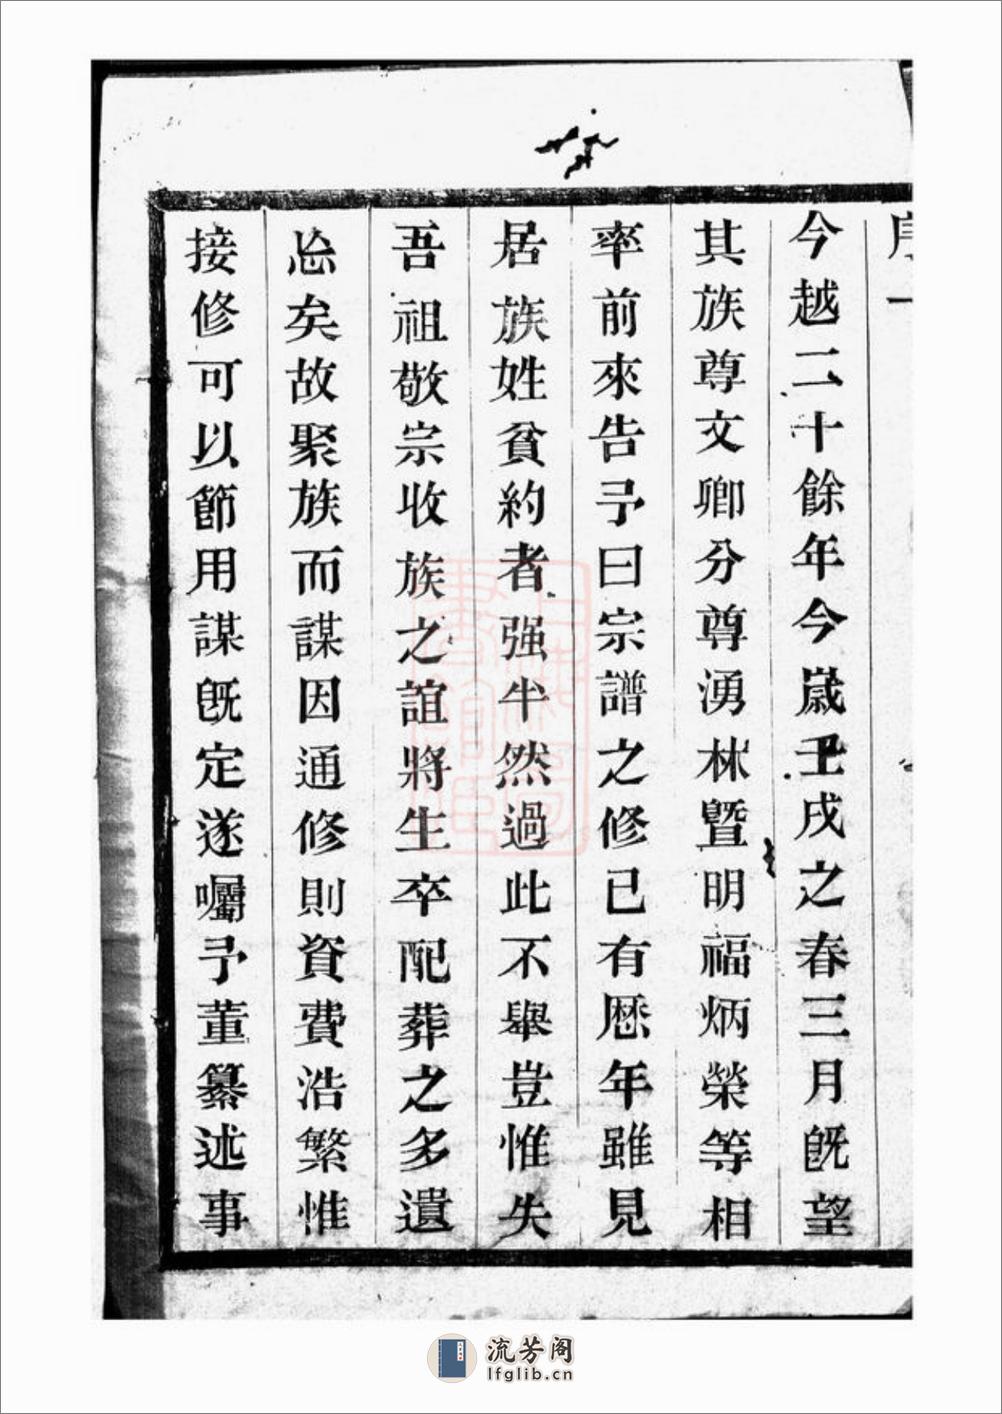 序一
今越二十餘年今嵗壬戌之春三月旣望
其族尊文卿分尊湧林曁明福炳榮等相
率前來告予曰宗譜之修已有厯年雖見
居族姓貧約者强半然過此不舉豈惟失
吾祖敬宗收族之誼將生卒配葬之多遺
忘矣故聚族而謀因通修則資費浩繁惟
接修可以節用謀旣定遂囑予董纂述事
上海圖書館藏
流芳阁
lfglib.cn